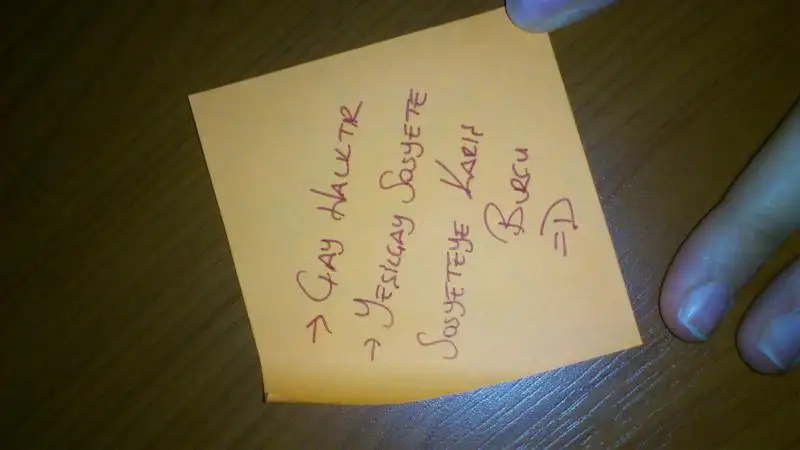 → GAY HALKTIR
→ YEŞİLGAY SOSYETE
SOSYETEYE KARIŞ
BURCU
=D